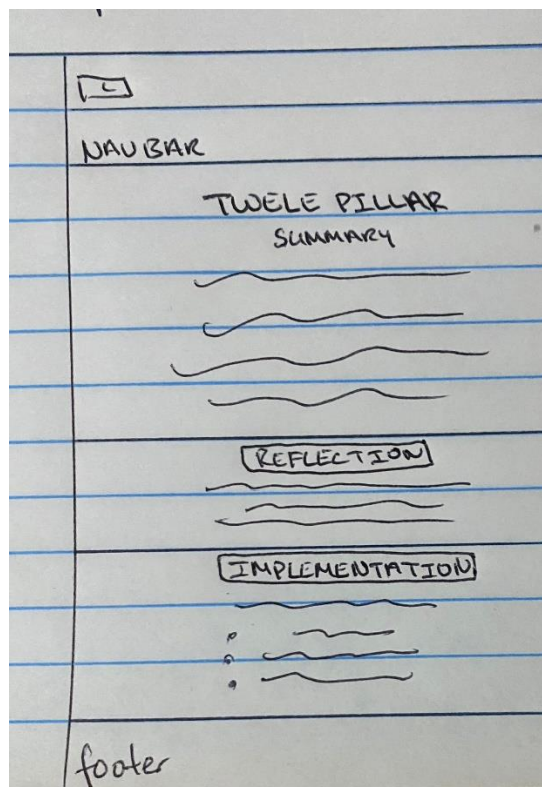 L
NAVBAR
TWELE PILLAR
SUMMARY
REFLECTION
IMPLEMENTATION
footer